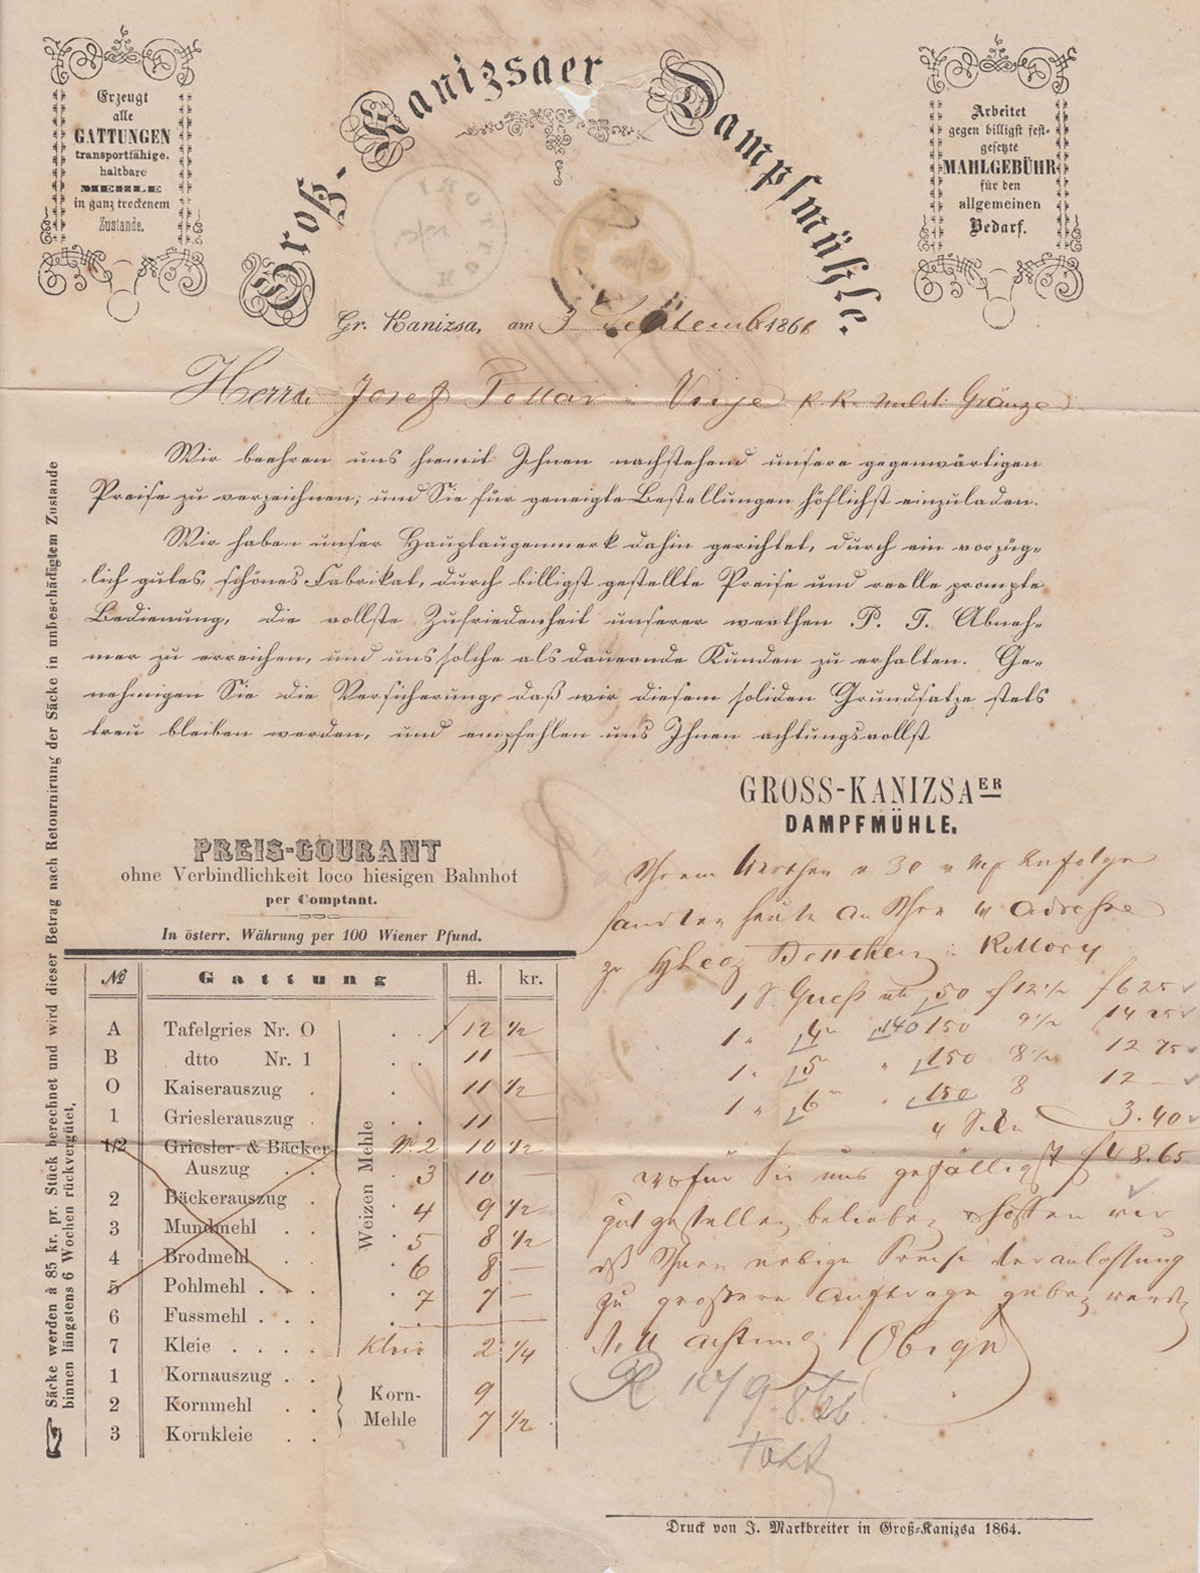 Erzeugt
alle
GATTUNGEN
transportfähige,
haltbare
MEHLE
in ganz trockenem
Zustande.
Groß-Kanizsaer Dampfmühle.
Arbeitet
gegen billigst fest-
gesetzte
MAHLGEBÜHR
für den
allgemeinen
Bedarf.
Gr. Kanizsa, am 3 Septemb 1866
Herrn Josef in k. k. milit. Gränze
Wir beehren uns hiemit Ihnen nachstehend unsere gegenwärtigen
Preise zu verzeichnen, und Sie für geneigte Bestellungen höflichst einzuladen.
Wir haben unser Hauptaugenmerk dahin gerichtet, durch ein vorzüg-
lich gutes, schönes Fabrikat, durch billigst gestellte Preise und reelle prompte
Bedienung, die vollste Zufriedenheit unserer werthen P. T. Abneh-
mer zu erreichen, und uns solche als dauernde Kunden zu erhalten. Ge-
nehmigen Sie die Versicherung, daß wir diesem soliden Grundsatze stets
treu bleiben werden, und empfehlen uns Ihnen achtungsvollst
GROSS-KANIZSAER
DAMPFMÜHLE.
Säcke werden à 85 kr. pr. Stück berechnet und wird dieser Betrag nach Retournirung der Säcke in unbeschädigtem Zustande
binnen längstens 6 Wochen rückvergütet.
PREIS-COURANT
ohne Verbindlichkeit loco hiesigen Bahnhof
per Comptant.
In österr. Währung per 100 Wiener Pfund.
№ Gattung fl. kr.
A Tafelgries Nr. 0 12 ½
B dtto Nr. 1 11 —
0 Kaiserauszug 11 ½
1 Grieslerauszug 11 —
1/2 Griesler- & Bäcker Nº 2 10 ½
Auszug 3 10
2 Bäckerauszug 4 9 ½
3 Mundmehl 5 8 ½
4 Brodmehl 6 8 —
5 Pohlmehl 7 7 —
6 Fussmehl
7 Kleie Kleie 2 ¼
Weizen Mehle
1 Kornauszug
2 Kornmehl 9
3 Kornkleie 7 ½
Korn-
Mehle
30
sandten heute an Ihre Adresse
1 S. Gries 50 f 12½ f 6 25
1 " 4 150 9½ 14 25
1 " 5 " 150 8½ 12 75
1 " 6 " 150 8 12 —
4 3.40
wofür Sie uns gefälligst f 48.65
gut zu stellen belieben & hoffen wir
Preise Veranlassung
zu größere Aufträge geben werden
Obige
R 10/9 866
Druck von J. Markbreiter in Groß-Kanizsa 1864.